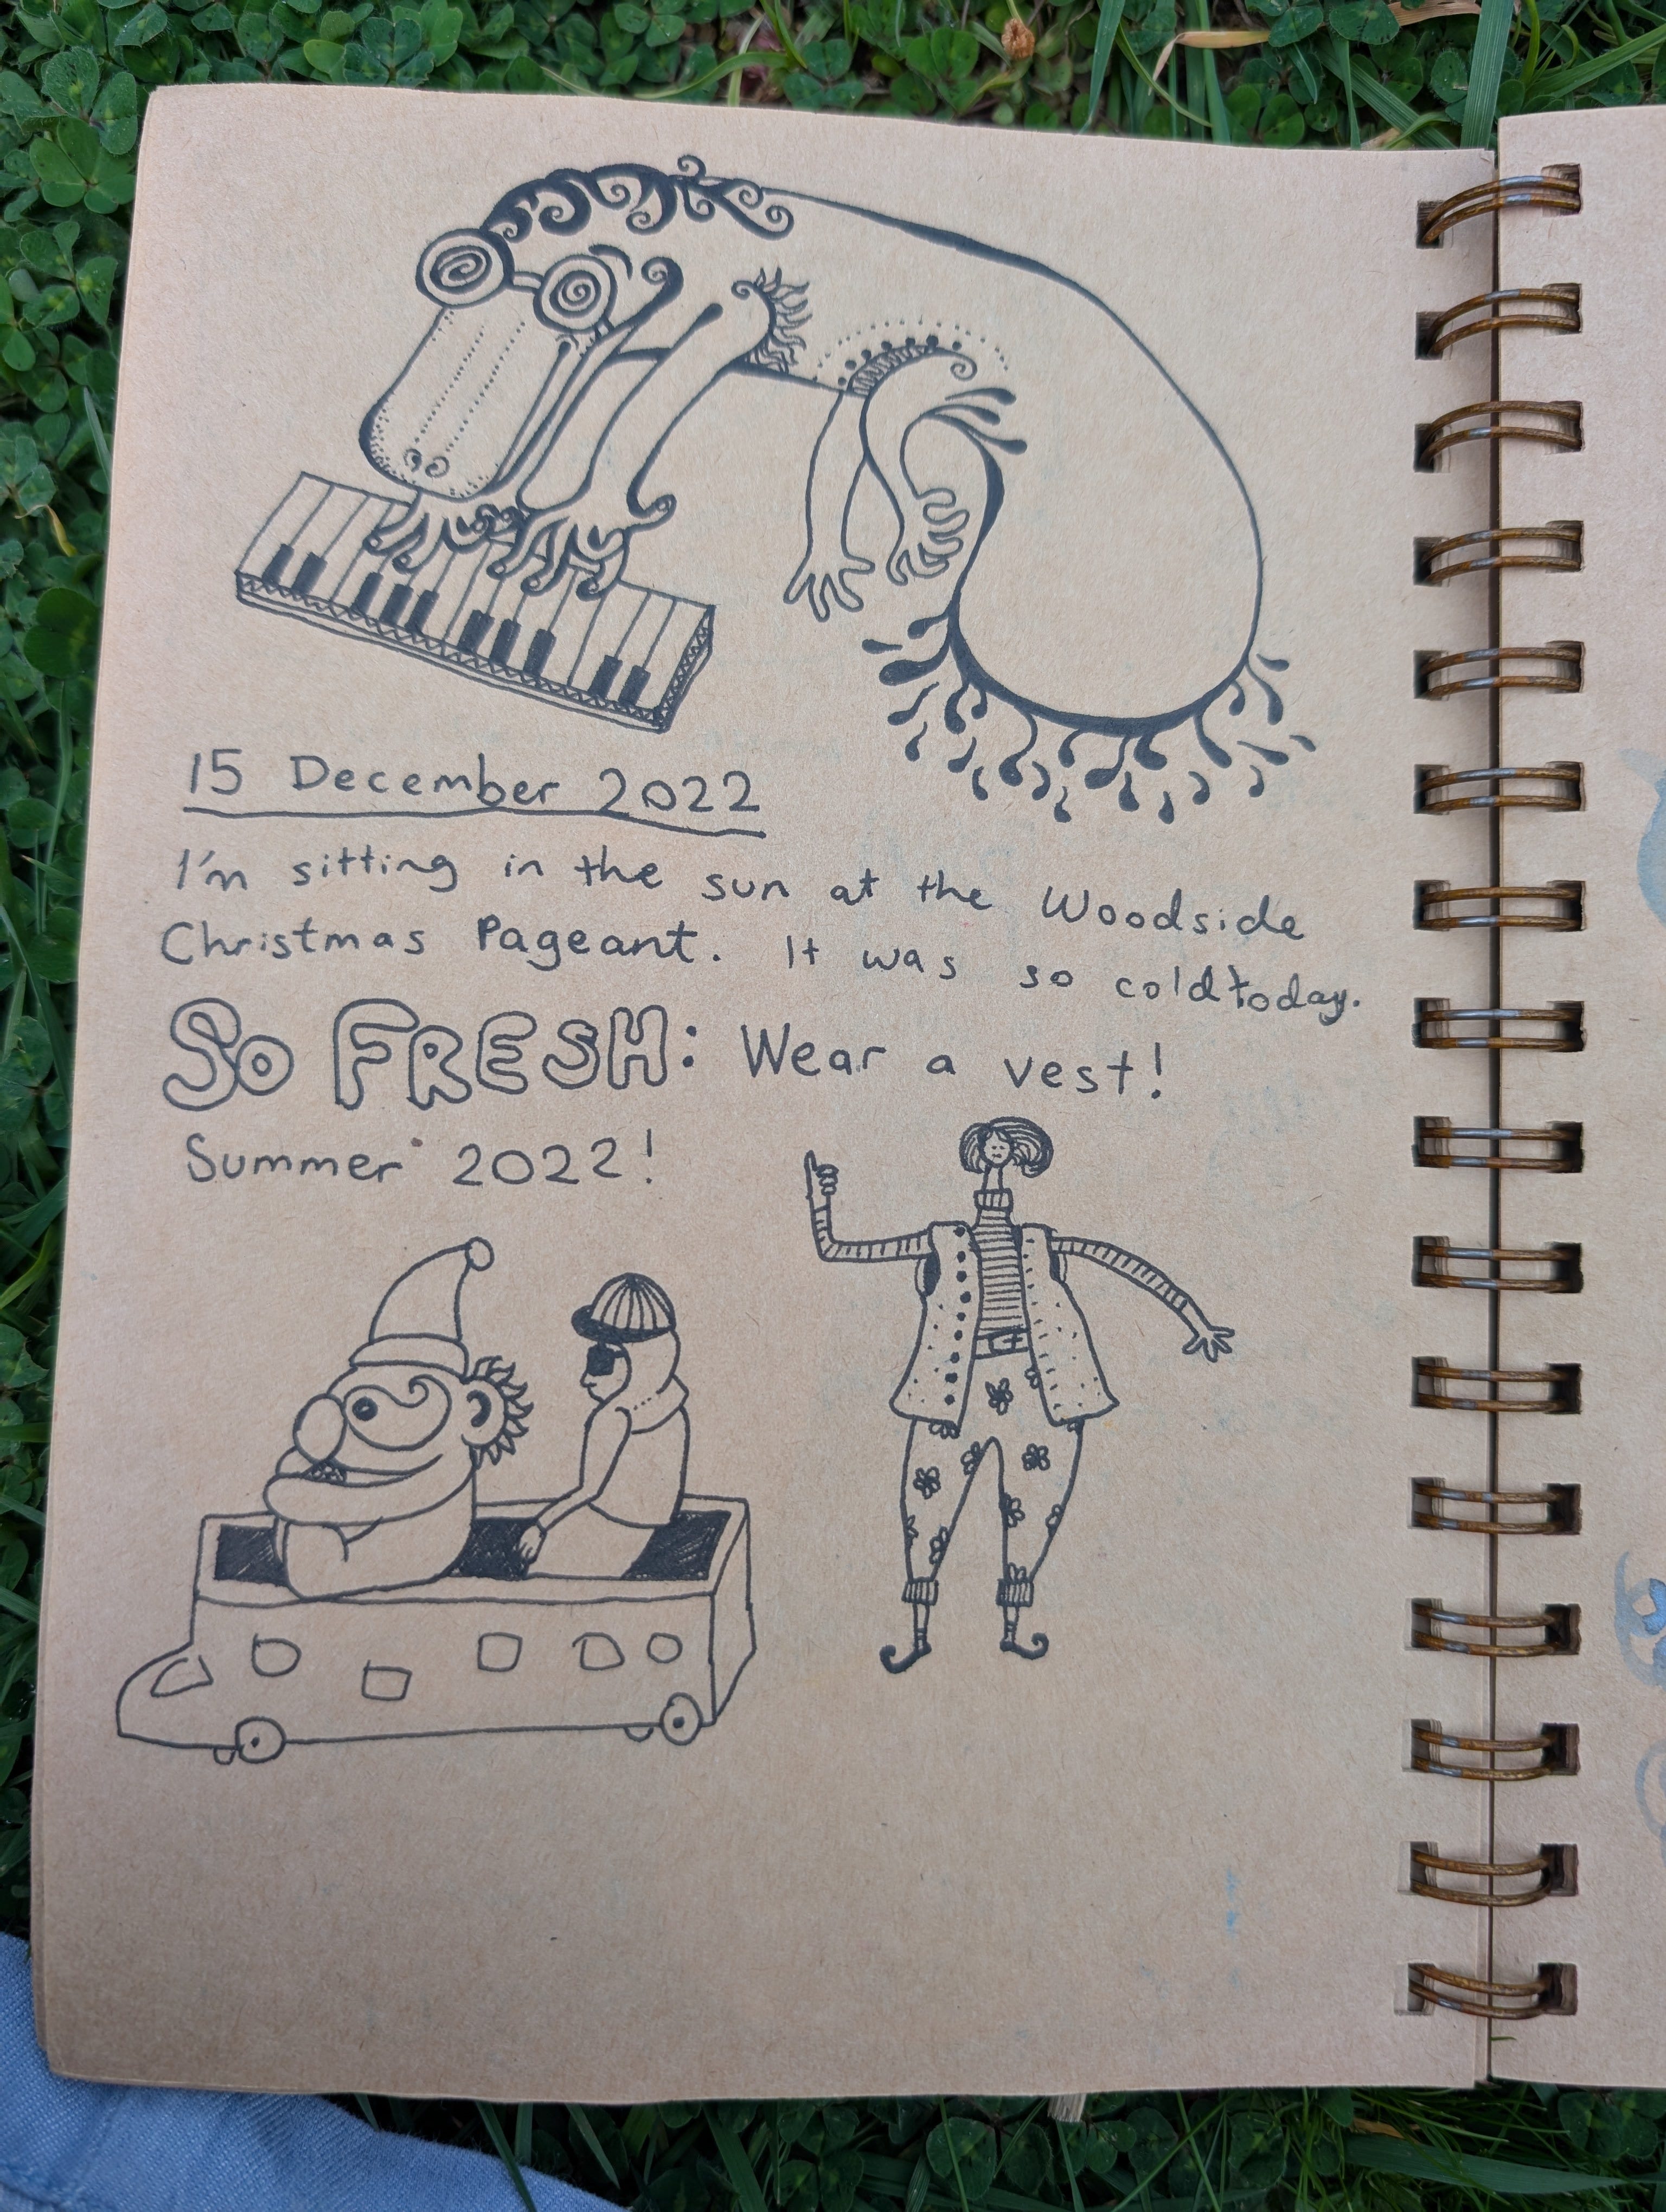 15 December 2022
I'm sitting in the sun at the Woodside
Christmas Pageant. It was so cold today.
So FRESH: Wear a vest!
Summer 2022!